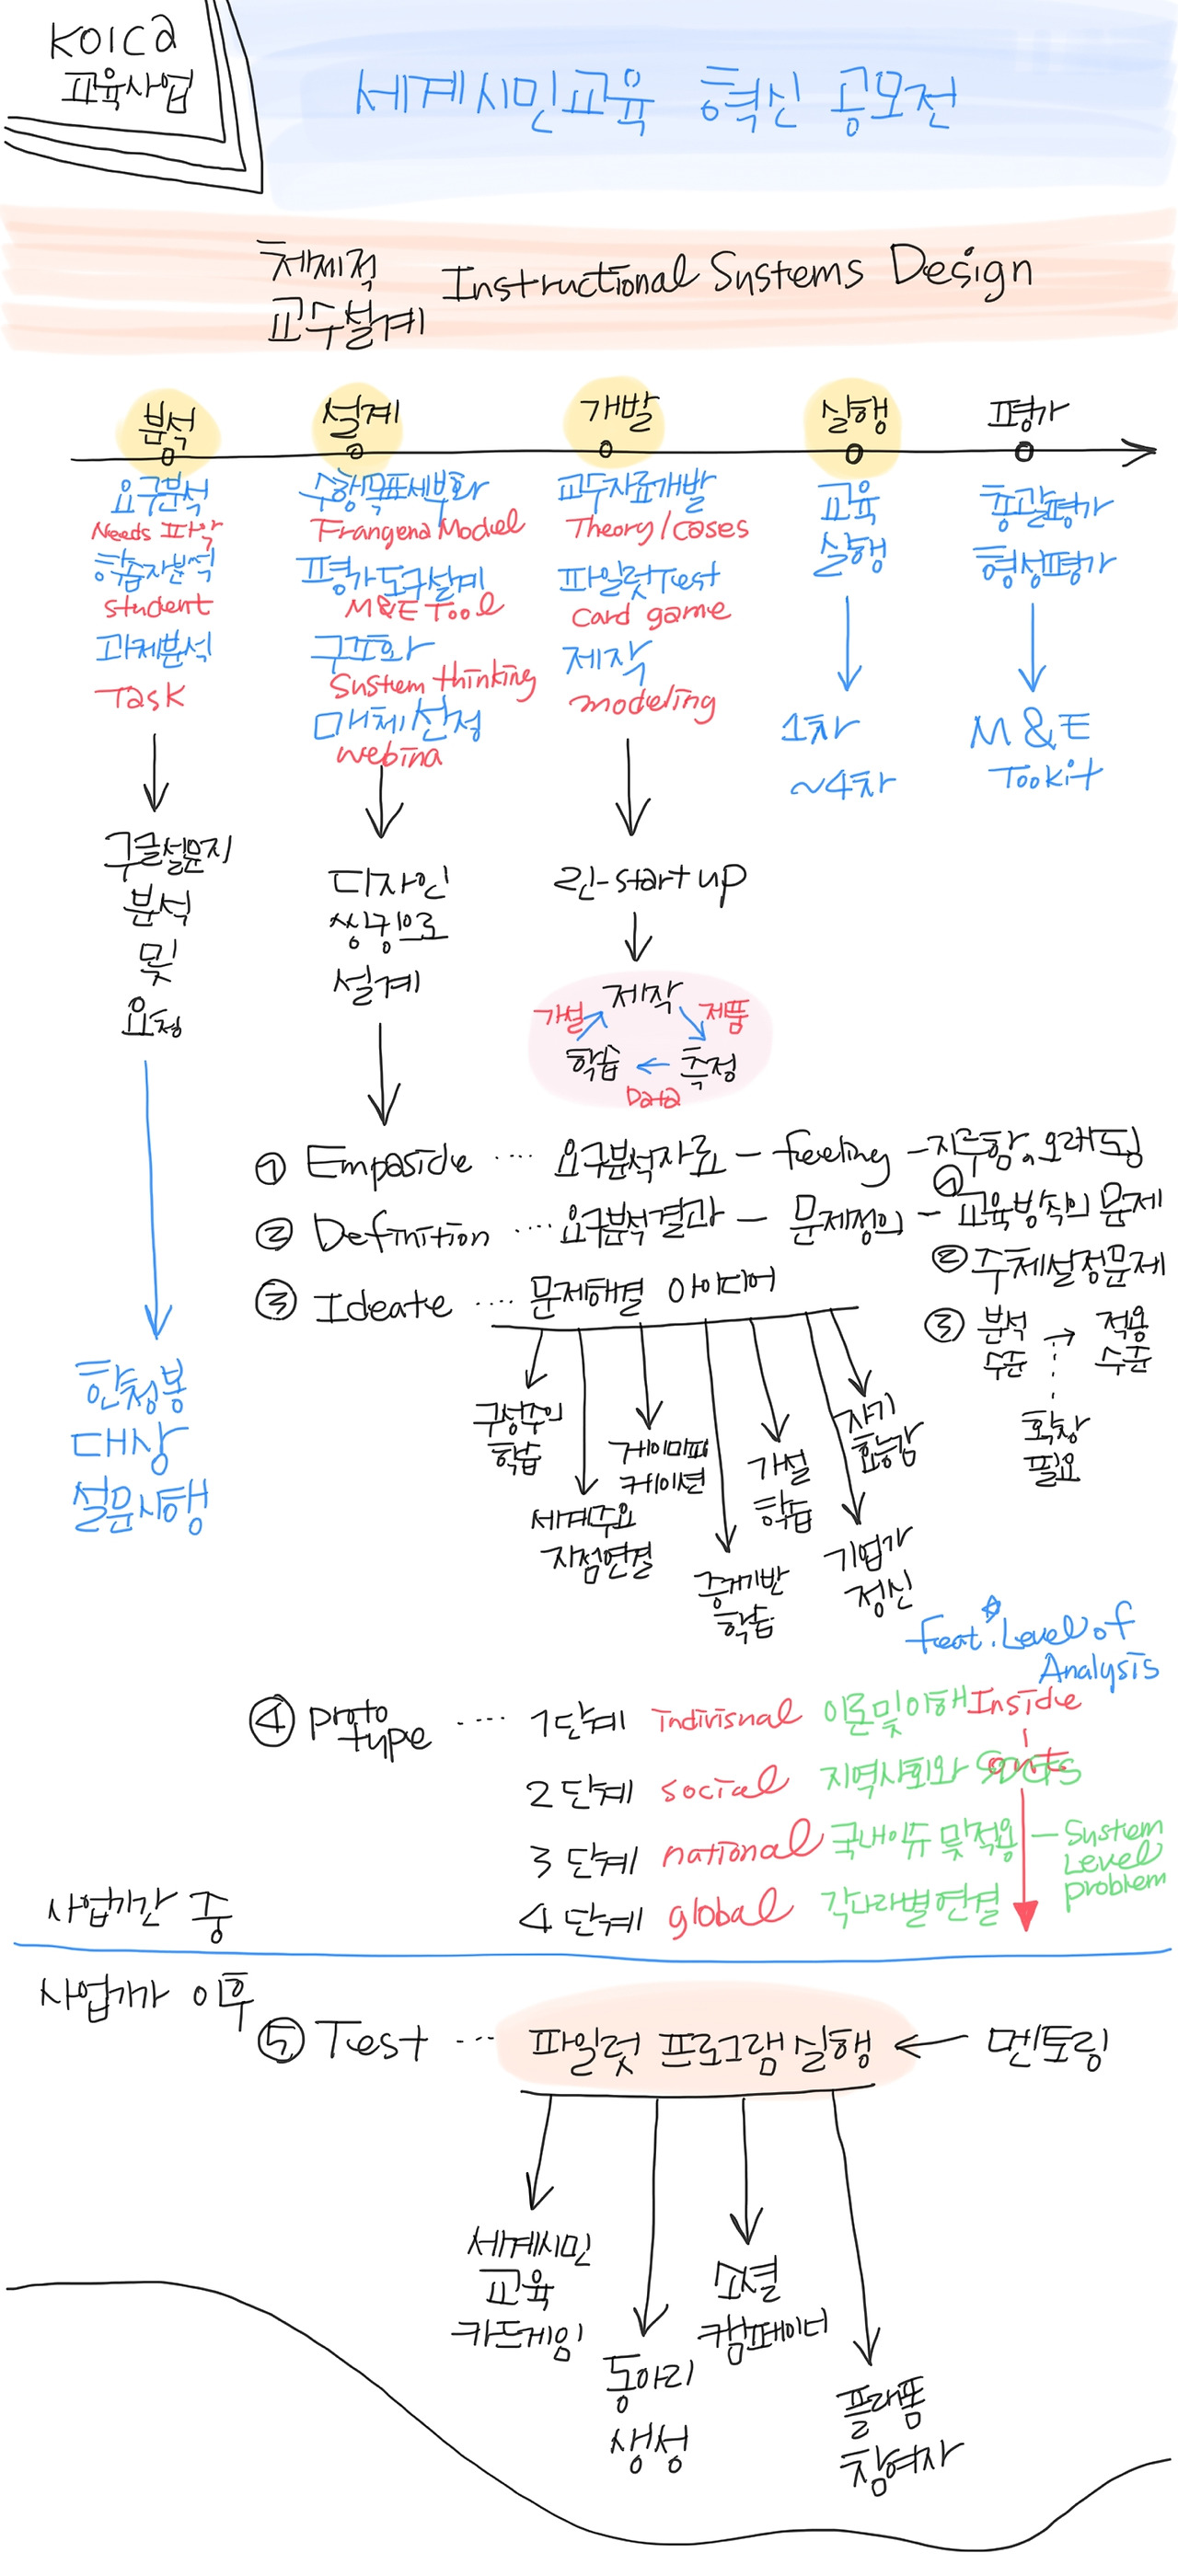 KOICA
교육사업
세계시민교육 혁신 공모전
체제적
교수설계
Instructional Systems Design
분석
설계
개발
실행
평가
요구분석
Needs 파악
학습자분석
student
과제분석
Task
수행목표세부화
Frangena Model
평가도구설계
M&E Tool
구조화
System thinking
매체선정
webina
교수자료개발
Theory/cases
파일럿Test
Card game
제작
modeling
교육
실행
총괄평가
형성평가
1차
~4차
M&E
Tookit
구글설문지
분석
및
요청
디자인
씽킹으로
설계
린-startup
제작
가설
제품
학습
측정
Data
한청봉
대상
설문시행
① Empaside ···· 요구분석자료 - feeling - 지루함. 오래됨
② Definition ···· 요구분석결과 - 문제정의 - ① 교육방식의 문제
② 주제설정문제
③ 분석
수준
→ 적용
수준
확장
필요
③ Ideate ···· 문제해결 아이디어
구성주의
학습
세계주요
지점연결
게이미피
케이션
증거기반
학습
가설
학습
기업가
정신
자기
효능감
feat. Level of
Analysis
④ proto
type ···· 1단계 indivisnal 이론및이해 Inside
out
2단계 social 지역사회와 SDGs
3단계 national 국내이슈 및 적용 - System
Level
problem
4단계 global 각나라별연결
사업기간 중
사업기간 이후
⑤ Test ··· 파일럿 프로그램 실행 ← 멘토링
세계시민
교육
카드게임
동아리
생성
소셜
캠페이너
플래폼
참여자